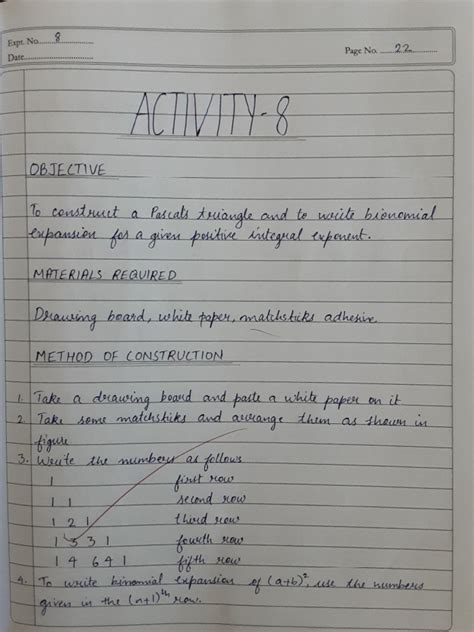 Expt. No. 8
Date
Page No. 22
ACTIVITY-8
OBJECTIVE
To construct a Pascals triangle and to write bionomial
expansion for a given positive integral exponent.
MATERIALS REQUIRED
Drawing board, white paper, matchsticks adhesive
METHOD OF CONSTRUCTION
1. Take a drawing board and paste a white paper on it
2. Take some matchsticks and arrange them as shown in
figure
3. Write the numbers as follows
1 first row
1 1 second row
1 2 1 third row
1 3 3 1 fourth row
1 4 6 4 1 fifth row
4. To write binomial expansion of (a+b)², use the numbers
given in the (n+1)th row.